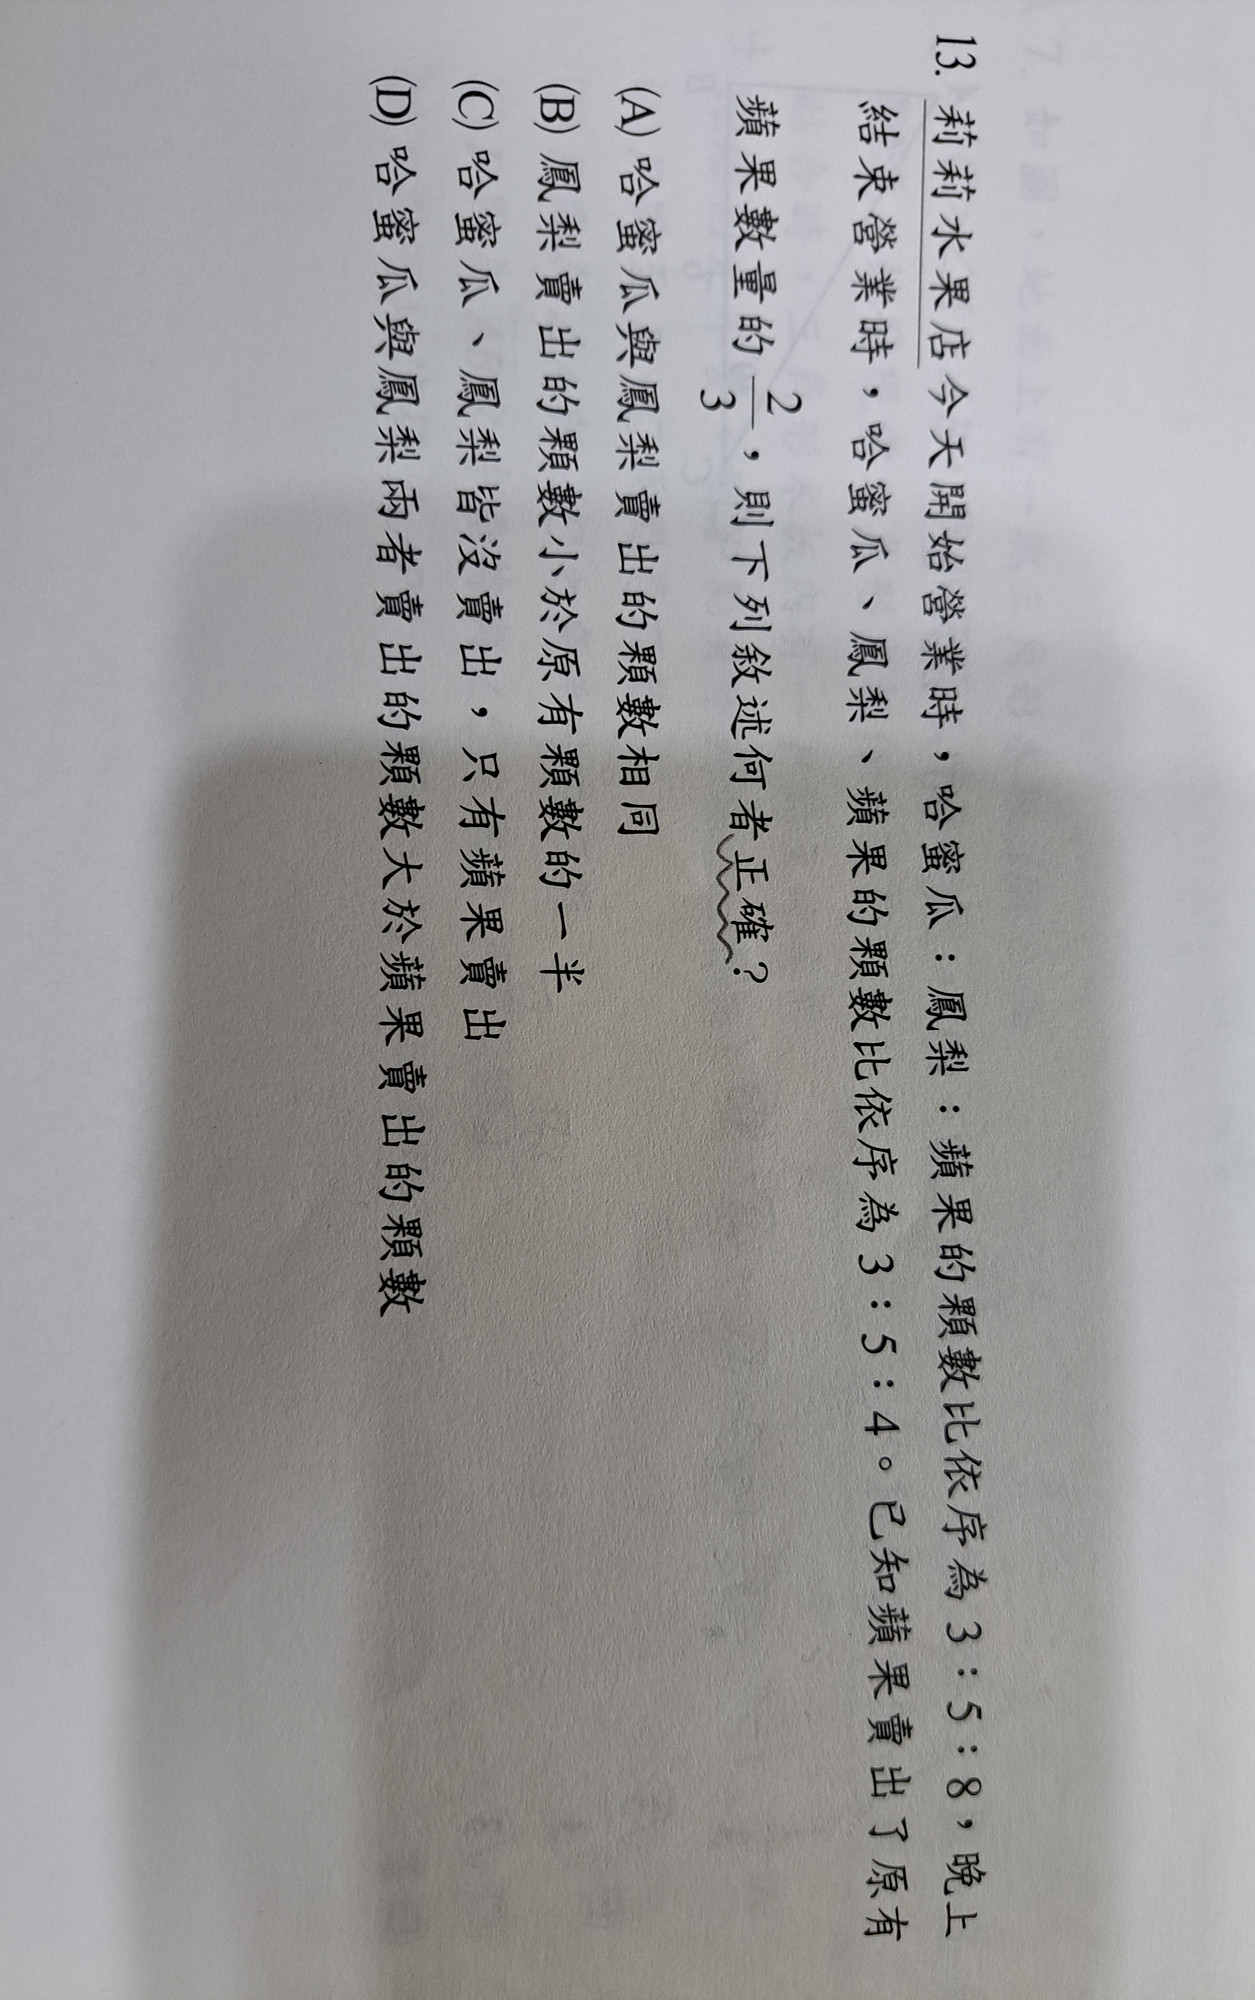 13. 莉莉水果店今天開始營業時，哈蜜瓜：鳳梨：蘋果的顆數比依序為3：5：8，晚上
結束營業時，哈蜜瓜、鳳梨、蘋果的顆數比依序為3：5：4。已知蘋果賣出了原有
蘋果數量的2/3，則下列敘述何者正確？
(A) 哈蜜瓜與鳳梨賣出的顆數相同
(B) 鳳梨賣出的顆數小於原有顆數的一半
(C) 哈蜜瓜、鳳梨皆沒賣出，只有蘋果賣出
(D) 哈蜜瓜與鳳梨兩者賣出的顆數大於蘋果賣出的顆數